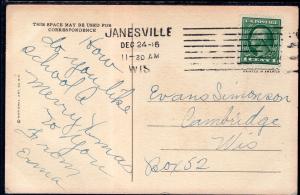 THIS SPACE MAY BE USED FOR
CORRESPONDENCE
JANESVILLE
DEC 24-16
11-30 AM
WIS
U.S. POSTAGE
How
do you like
school a
merry Xmas
to You
From
Erma
Evans Simonson
Cambridge
Wis
Box 52